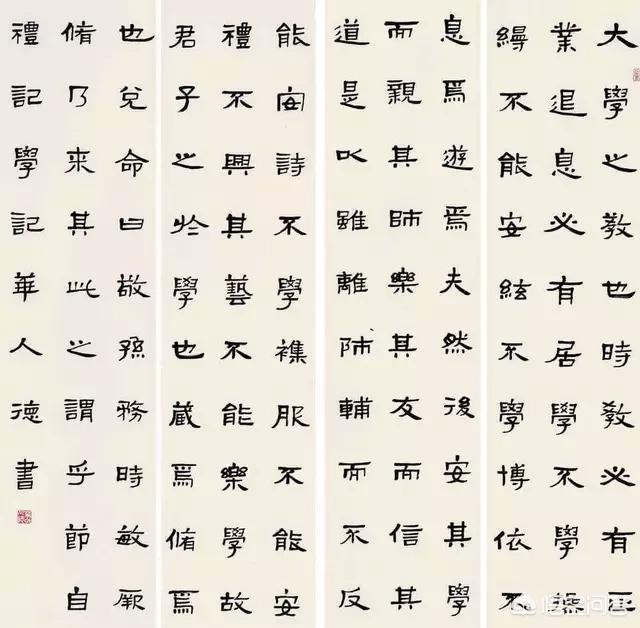 大學之教也時教必有正
業退息必有居學不學操
縵不能安絃不學博依不
能安詩不學襍服不能安
禮不興其藝不能樂學故
君子之於學也藏焉脩焉
息焉遊焉夫然後安其學
而親其師樂其友而信其
道是以雖離師輔而不反
也兌命曰敬孫務時敏厥
脩乃來其此之謂乎節自
禮記學記華人德書
悟空问答